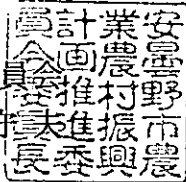 安曇野市農
業農村振興
計画推進委
員会委員長